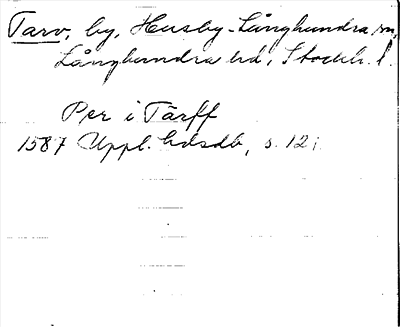 Tarv, by, Husby-Långhundra sn,
Långhundra hd, Stockh. l.
Per i Tärff
1587 Uppl. hdsdb, s. 12.